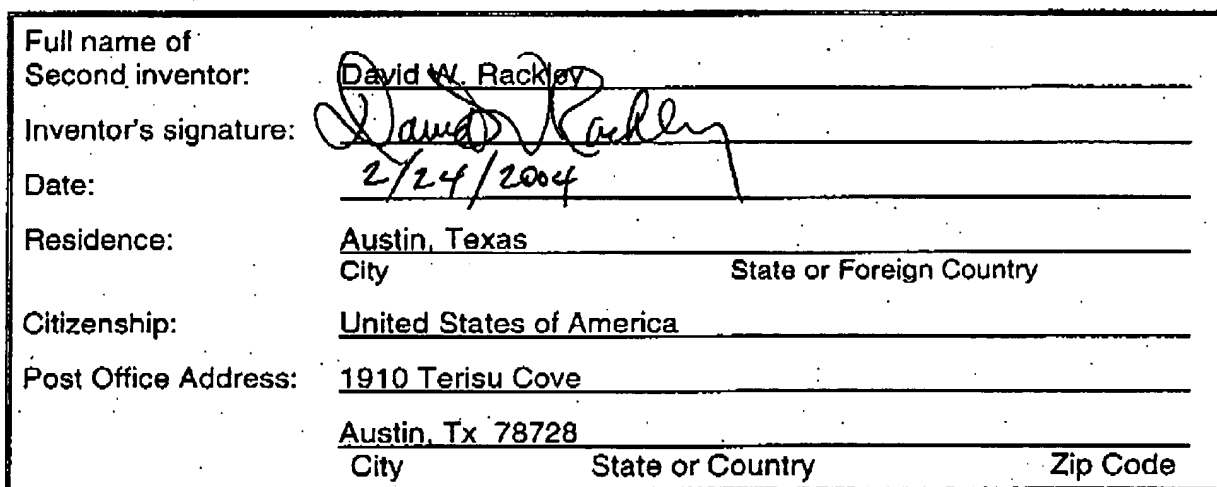 Full name of
Second inventor: David W. Rackley
Inventor's signature: David Rackley
Date: 2/24/2004
Residence: Austin, Texas
City State or Foreign Country
Citizenship: United States of America
Post Office Address: 1910 Terisu Cove
Austin, Tx 78728
City State or Country Zip Code